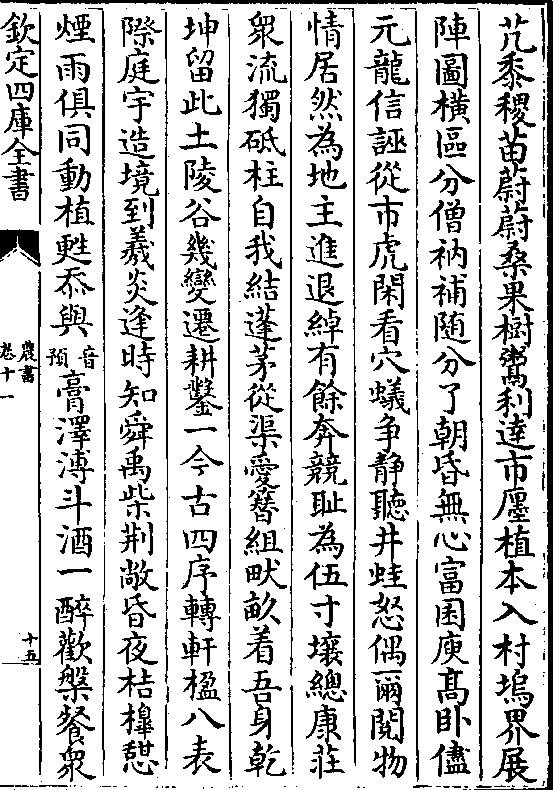 芃黍稷苗蔚蔚桑果樹鬻利達市廛植本入村塢界展
陣圖横區分僧衲補随分了朝昏無心富囷庾髙卧儘
元龍信誣從市虎閑看穴蟻争静聽井蛙怒偶爾閲物
情居然為地主進退綽有餘奔競耻為伍寸壤總康莊
衆流獨砥柱自我結蓬茅從渠愛簪組畎畝着吾身乾
坤留此土陵谷幾變遷耕鑿一今古四序轉軒楹八表
際庭宇造境到羲炎逢時知舜禹柴荆敞昏夜桔橰憇
煙雨俱同動植甦忝與音預膏澤溥斗酒一醉歡槃餐衆
欽定四庫全書
農書
卷十一
十五